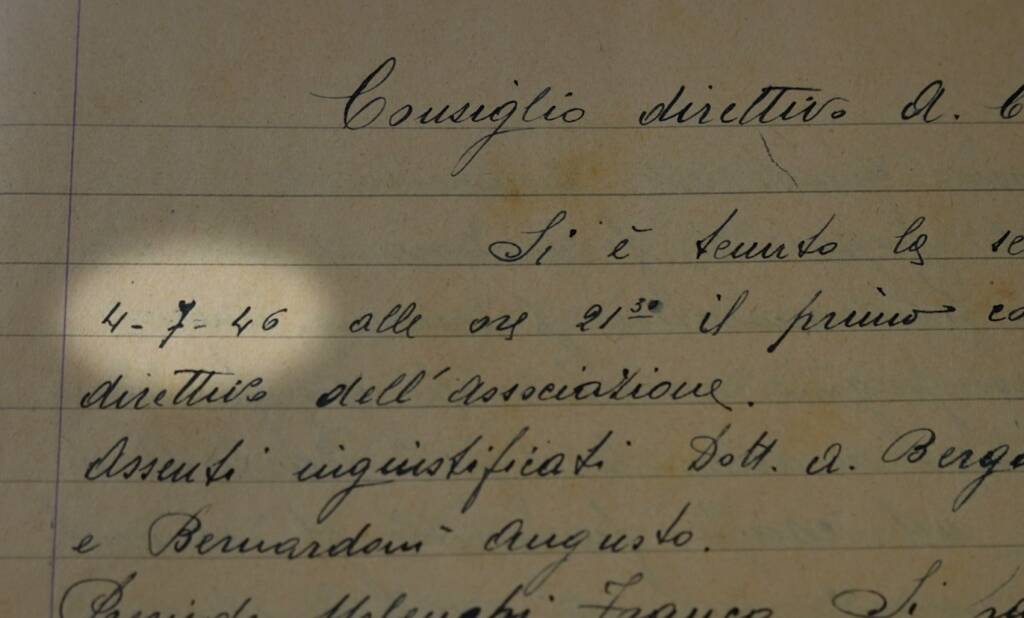 Consiglio direttivo A. C
Si è tenuto la se
4-7-46 alle ore 21³⁰ il primo co
direttivo dell'Associazione.
Assenti ingiustificati Dott. A. Berga
e Bernardoni Augusto.
Presiede Molenghi Franco. Si